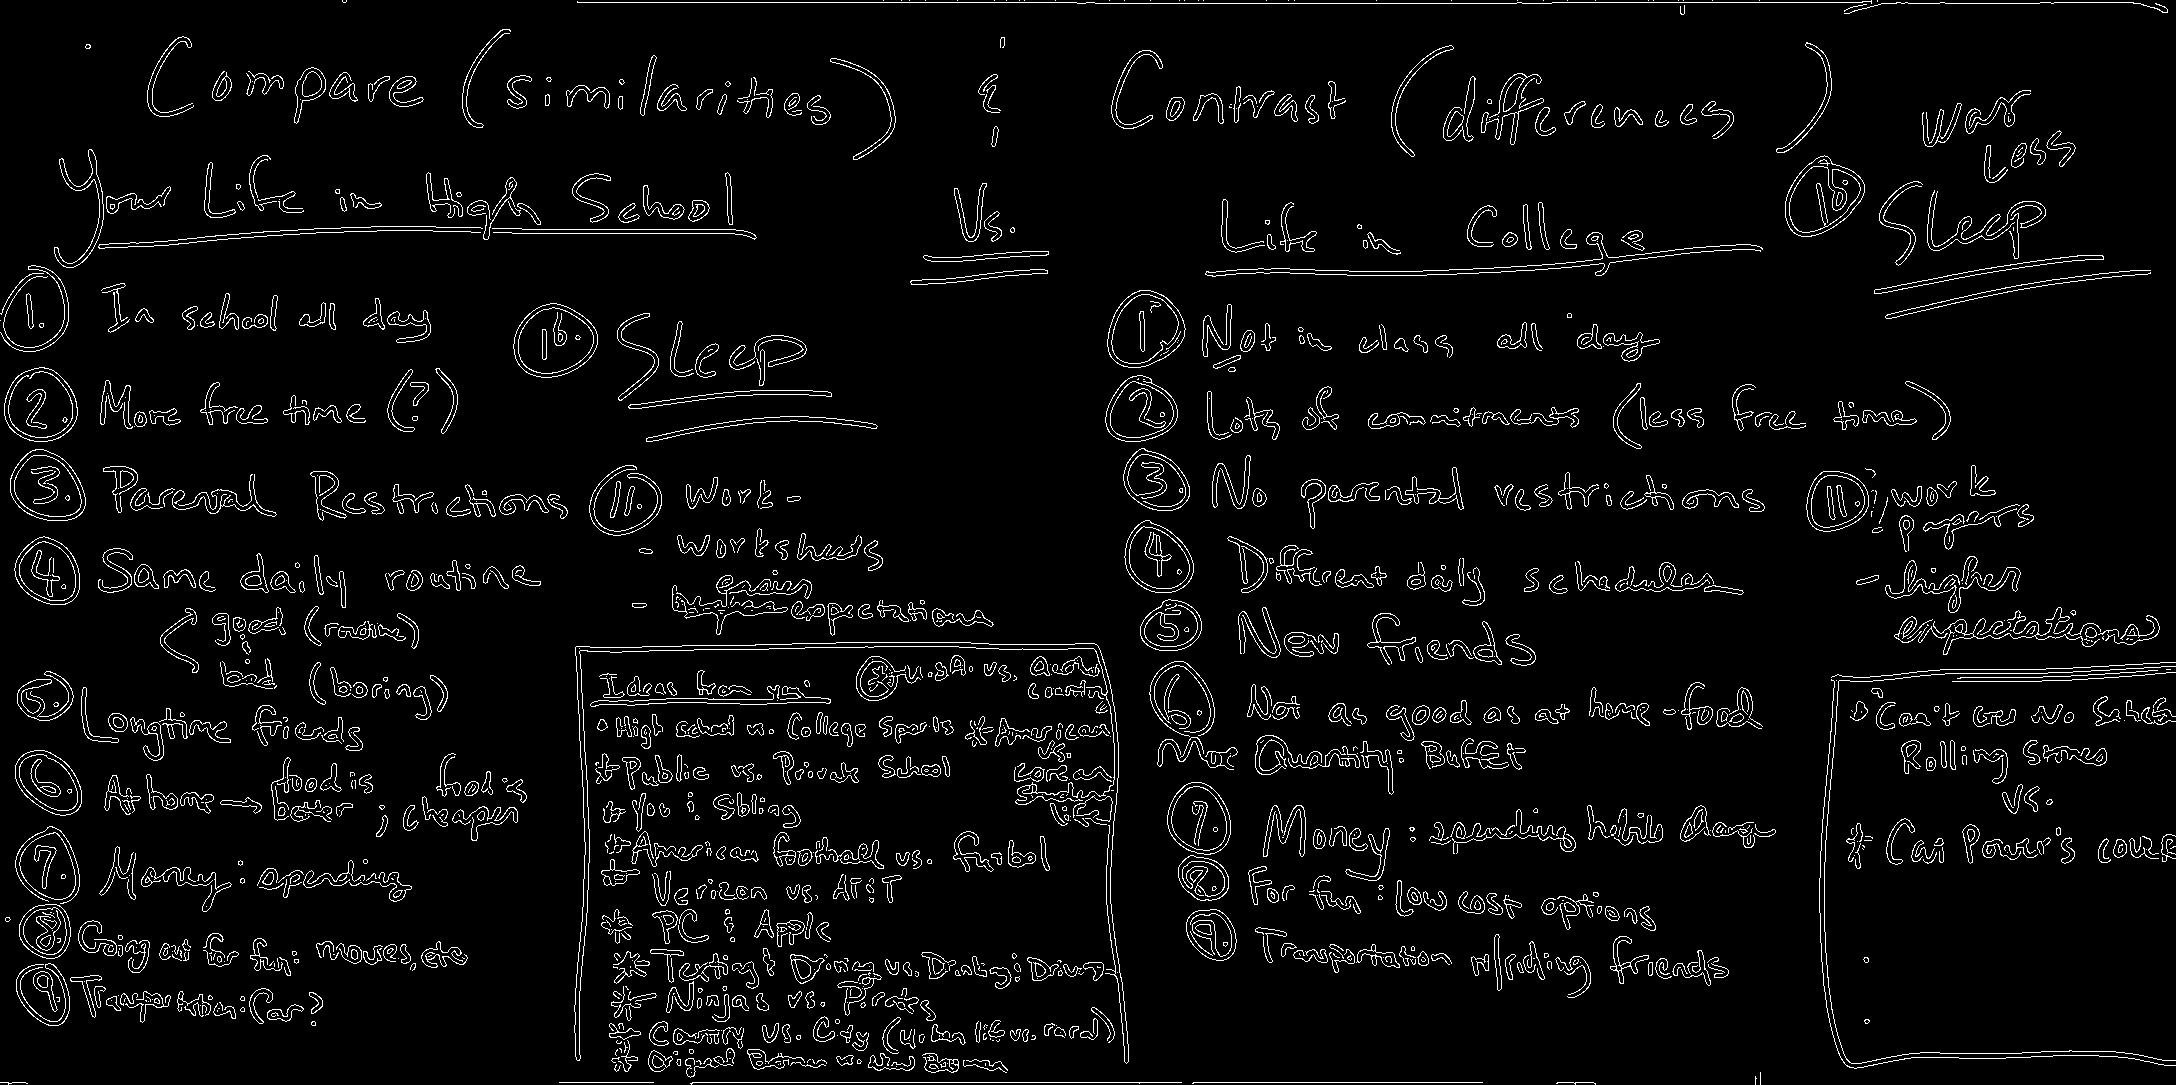 Compare (similarities) & Contrast (differences)
Your Life in High School Vs. Life in College
1. In school all day
2. More free time (?)
3. Parental Restrictions
4. Same daily routine
good (routine)
bad (boring)
5. Longtime friends
6. At home → food is better ; food is cheaper
7. Money: spending
8. Going out for fun: movies, etc
9. Transportation: Car?
10. Sleep
11. Work -
- worksheets
easier
- higher expectations
Ideas from you:
• High school vs. College Sports
* Public vs. Private School
* You & Sibling
* American football vs. futbol
* Verizon vs. AT&T
* PC & Apple
* Texting & Driving vs. Drinking & Driving
* Ninjas vs. Pirates
* Country vs. City (urban life vs. rural)
* Original Batman vs. New Batman
* U.S.A. vs. Another country
* American vs. Korean student life
1. Not in class all day
2. Lots of commitments (less free time)
3. No parental restrictions
4. Different daily schedules
5. New friends
6. Not as good as at home - food
More Quantity: Buffet
7. Money: spending habits change
8. For fun: low cost options
9. Transportation w/riding friends
10. Way Less Sleep
11. work
papers
- higher
expectations
Can't Get No
Rolling Stones
vs.
* Cat Power's cover